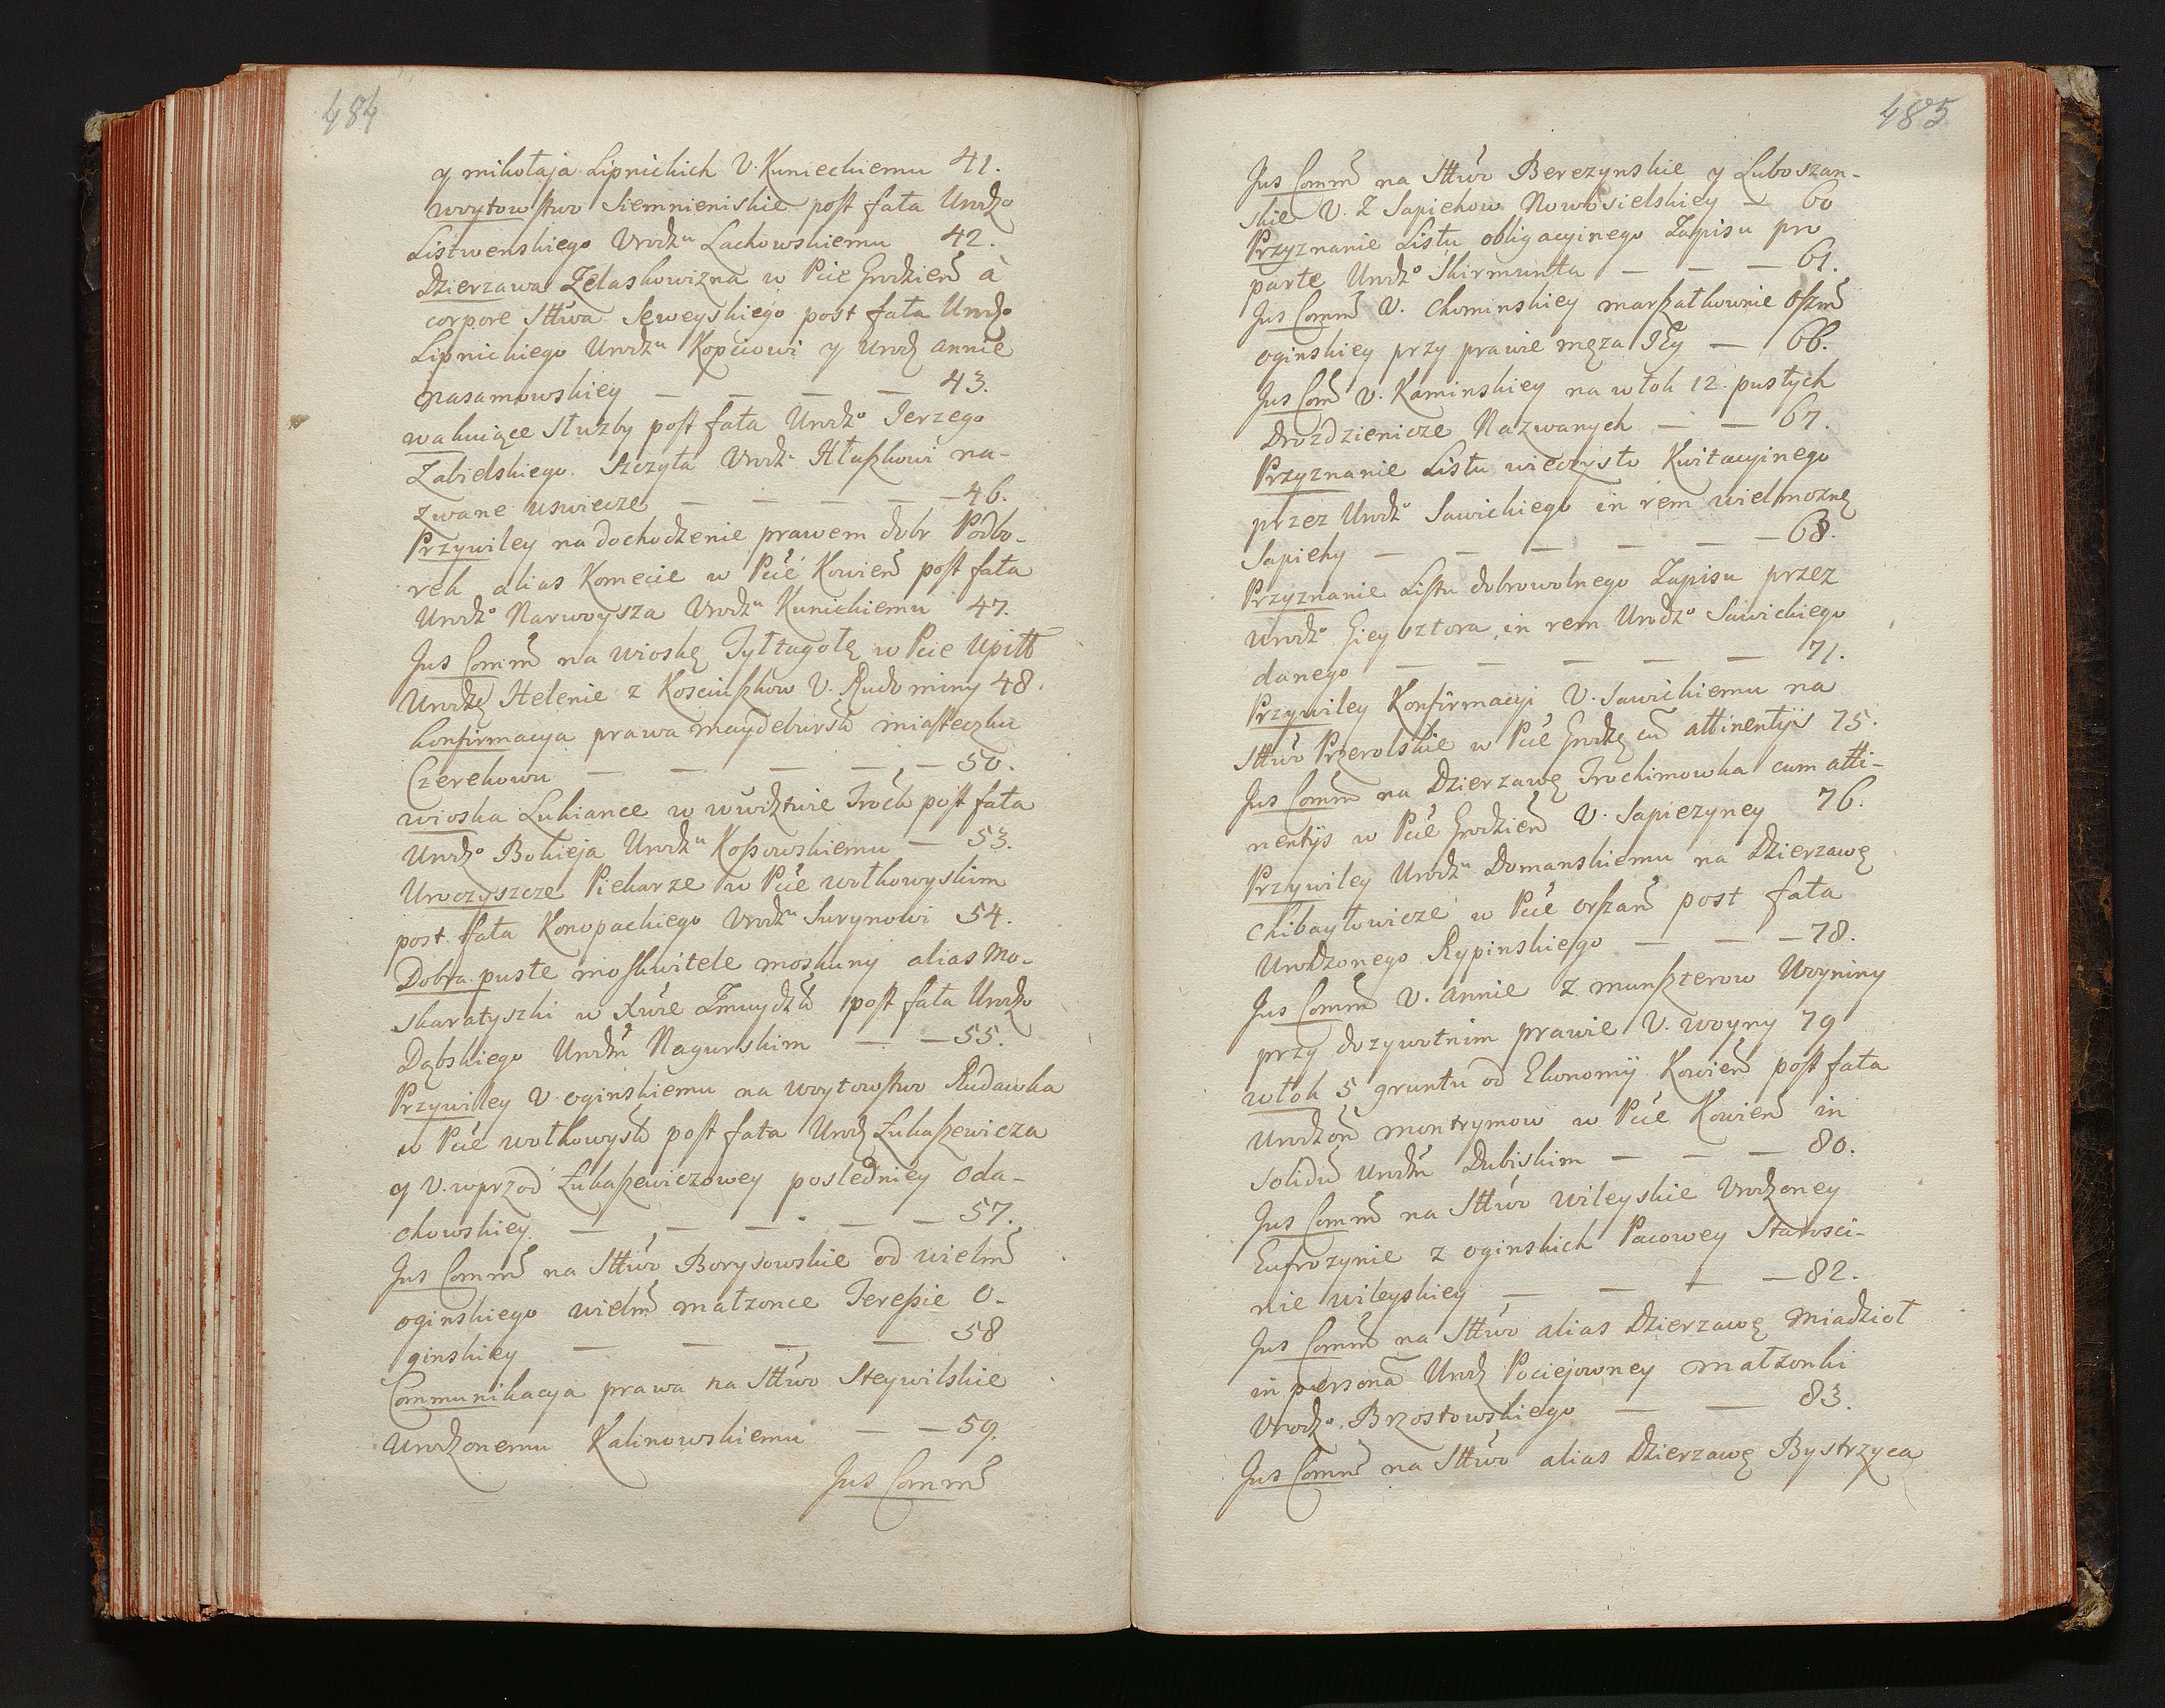 484
y mikołaja Lipnickich V. Kunieckiemu 41.
woytowstwo Siemnieniskie post fata Urodzo
Listwenskiego Urodzu Lachowskiemu 42.
Dzierzawa Zelaskowizna w Pcie Grodzień à
corpore Sttwa Seweyskiego post fata Urodzo
Lipnickiego Urodzu Kopciowi y Urodz annie
Nasamowskiey — — — — 43.
wakuiące Służby post fata Urodzo Jerzego
Zabielskiego. Szczyta Urodz Hłaszkowi na-
zwane uswiecze — — — — — 46.
Przywiley na dochodzenie prawem dobr Podbo-
rek alias Komecie w Pcie Kowień post fata
Urodzo Narwoysza Urodzu Kunickiemu 47.
Jus Comm na wioskę Tyltagolę w Pcie Upitt
Urodzę Helenie z Kosciuszkow V. Rudominy 48.
konfirmacya prawa maydebursk miasteczku
Czerekowu — — — — — 50.
wioska Lukiance w wwdztwie Trock post fata
Urodzo Bokieja Urodzu Kossowskiemu — 53.
Uroczyszcze Piekarze w Pcie wołkowyskim
post fata Konopackiego Urodzu Surynowi 54.
Dobra puste moskwitele moskuny alias Mo-
skaratyszki w Xwie Zmuydzk post fata Urodzo
Dąbskiego Urodzm Nagurskim — — 55.
Przywiley V. oginskiemu na woytowstwo Rudawka
w Pcie wołkowysk post fata Urodz Łukaszewicza
y V. wprzod Łukaszewiczowey posledniey Oda-
chowskiey — — — — — 57.
Jus Comm na Sttwo Borysowskie od wielm
oginskiego wielm małzonce Teressie O-
ginskiey — — — — 58
Communikacya prawa na Sttwo Steywilskie
Urodzonemu Kalinowskiemu — — 59.
Jus Comm
485
Jus Comm na Sttwo Berezynskie y Luboszan-
skie V. Z Sapiehow Nowosielskiey — 60
Przyznanie Listu obligacyinego Zapisu pro
parte Urodzo Skirmunta — — — 61.
Jus Comm V. Chominskiey marszałkownie Oszm
oginskiey przy prawie męza JEy — 66.
Jus Com V. Kaminskiey na włok 12. pustych
Drozdzienicze Nazwanych — — 67.
Przyznanie Listu wieczysto Kwitacyinego
przez Urodzo Sawickiego in rem wielmoznę
Sapiehy — — — — — 68.
Przyznanie Listu dobrowolnego Zapisu przez
urodzo Gieysztora in rem Urodzo Sawickiego
danego — — — — — 71.
Przywiley Konfirmacyi V. Sawickiemu na
Sttwo Przerolskie w Pcie Grodzę cum attinentijs 75.
Jus Comm na Dzierzawę Trochimowka cum atti-
nentijs w Pcie Grodzień V. Sapiezyney 76.
Przywiley Urodzu Domanskiemu na Dzierzawę
Chibayłowicze w Pcie orszań post fata
Urodzonego Rypinskiego — — — 78.
Jus Comm V. annie z munszterow Woyniny
przy dozywotnim prawie V. woyny 79
włok 5 gruntu od Ekonomij Kowień post fata
Urodzon montrymow w Pcie Kowień in
solidum Urodzm Dubiskim — — — 80.
Jus Comm na Sttwo wileyskie Urodzoney
Eufrozynie z oginskich Pacowey Starosci-
nie wileyskiey — — — — 82.
Jus Comm na Sttwo alias Dzierzawę Miadzioł
in persona Urodz Pociejowney małzonki
Urodzo Brzostowskiego — — 83.
Jus Comm na Sttwo alias Dzierzawę Bystrzyca